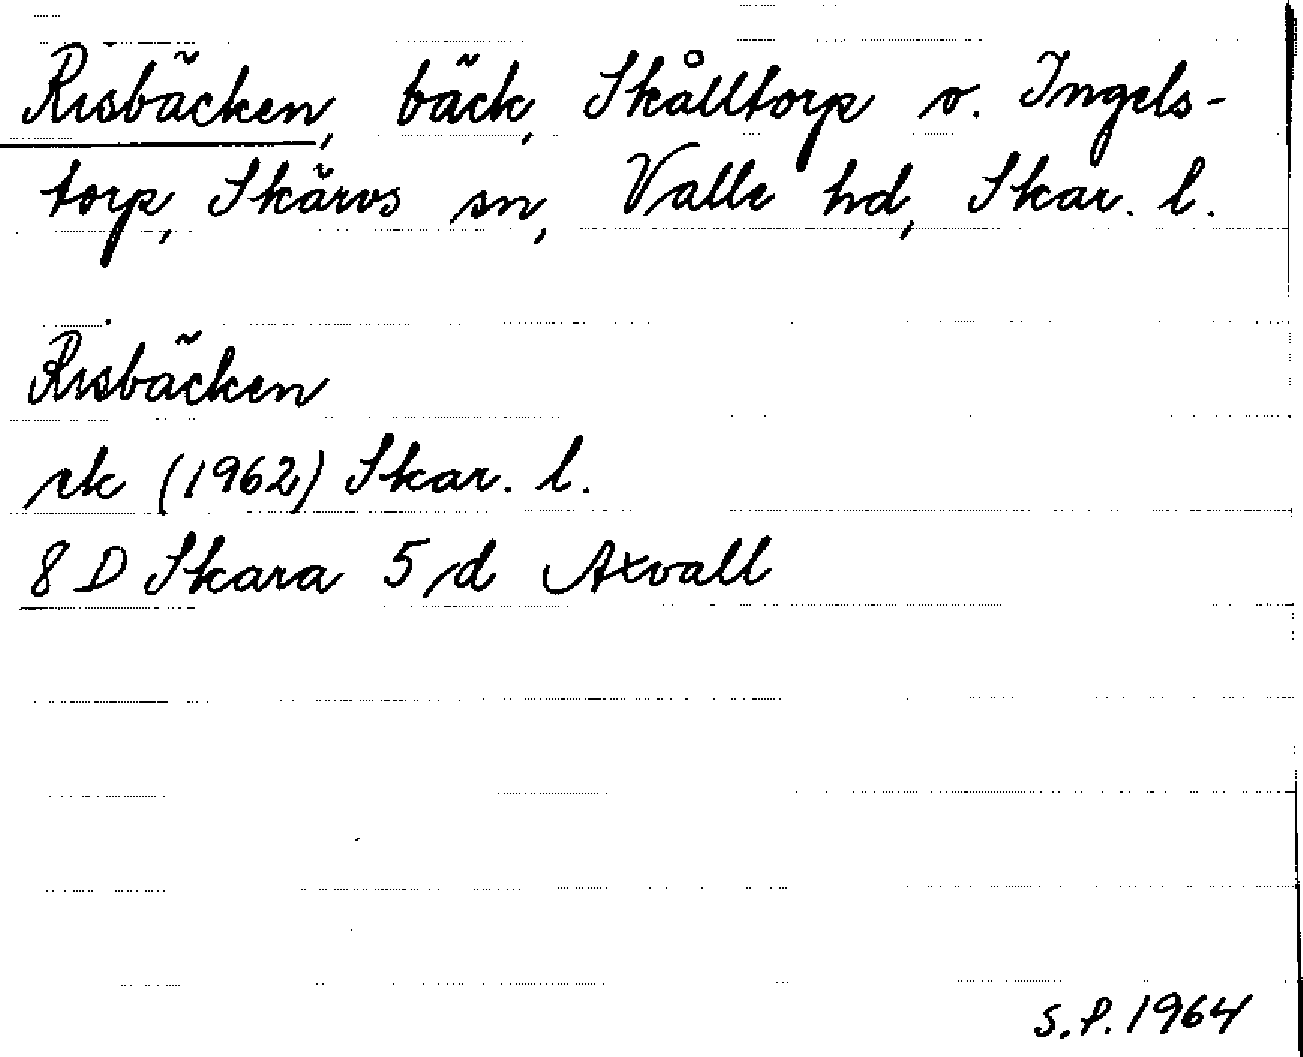 Risbäcken, bäck, Skålltorp o. Ingels-
torp, Skärvs sn, Valle hd, Skar. l.
Risbäcken
rk (1962) Skar. l.
8 D Skara 5 d Axvall
S.P. 1964